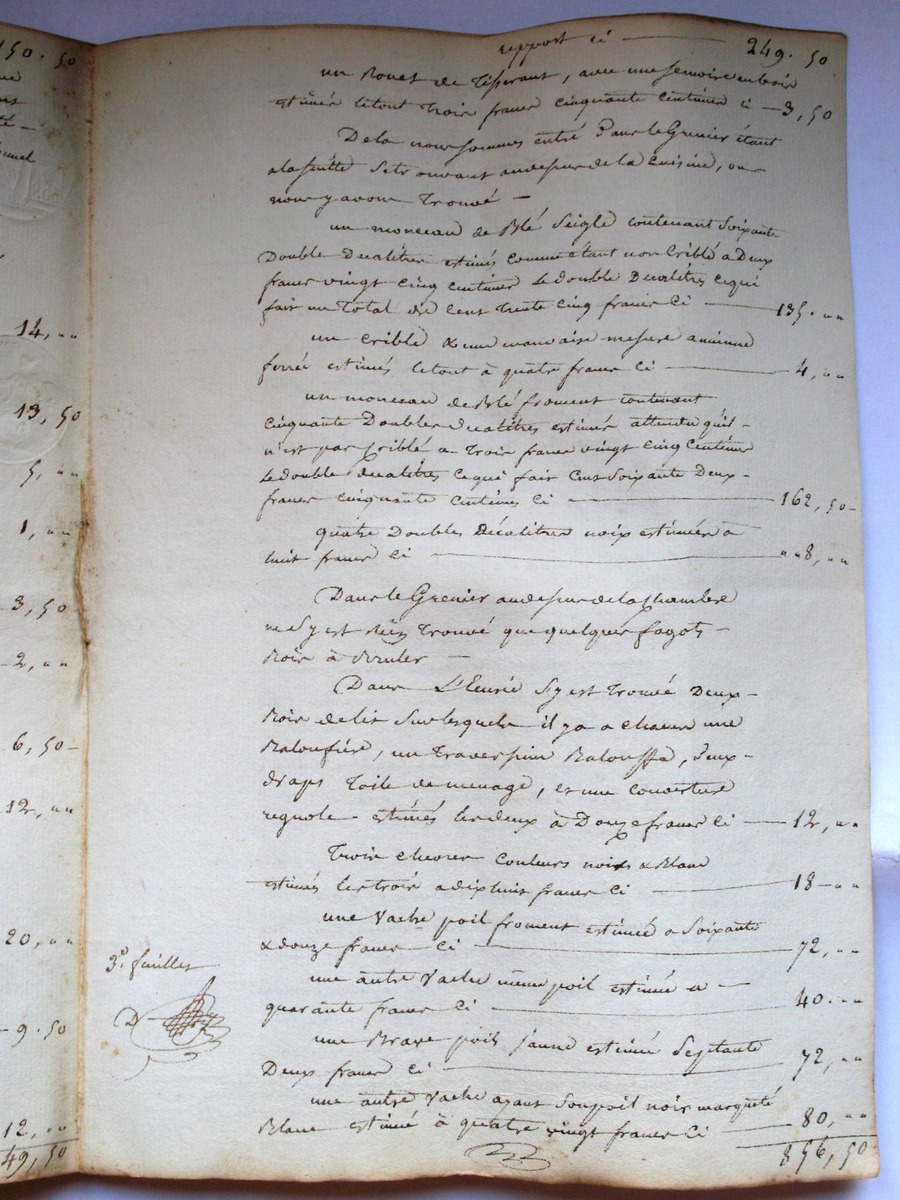 150. 50
14, ""
13, 50
5, ""
1, ""
3, 50
2, ""
6, 50
12, ""
20, ""
9. 50
12, ""
49, 50
report ci — 249. 50
un Rouet de Tisserant, avec une semoire en bois
estimés le tout trois francs cinquante centimes ci — 3, 50
De la nous sommes entré Dans le Grenier étant
a la suitte se trouvant au dessus de la Cuisine, ou
nous y avons Trouvé —
un monceau de Blé Seigle contenant Soixante
Double Décalitres estimés comme étant non Criblé a Deux
francs vingt Cinq centimes le double Décalitres ce qui
fait un Total de Cent Trente Cinq francs Ci — 135. ""
un Crible & une mauvaise mesure ancienne
ferrée estimés le tout à quatre francs Ci — 4, ""
un monceau de Blé froment contenant
Cinquante Doubles Décalitres estimés attendu qu'il
n'est pas Criblé a Trois francs vingt Cinq Centimes
le double décalitres ce qui fait Cent Soixante Deux
francs cinquante centimes Ci — 162, 50
quatre Doubles Décalitres noix estimées a
huit francs Ci — ""8, ""
Dans le Grenier au dessus de la Chambre
ne s'y est Rien Trouvé que quelques fagots
Bois à Bruler —
Dans L'Ecurie s'y est Trouvé Deux
Bois de lit sur lesquels il y a a chacun une
Baloufière, un Traversin Balouffe, Deux
draps Toile de menage, et une Couverture
estimés les deux à Douze francs Ci — 12, ""
Trois chevres Couleurs noirs & Blanc
estimés les trois a dix huit francs Ci — 18 - ""
une Vache poil froment estimée a Soixante
& douze francs Ci — 72, ""
une autre Vache même poil estimée a
quarante francs Ci — 40. ""
une Brave poil jaune estimée Septante
Deux francs Ci — 72, ""
une autre Vache ayant son poil noir marqueté
Blanc estimée à quatre vingt francs Ci — 80, ""
856, 50
3e. feuillet
D